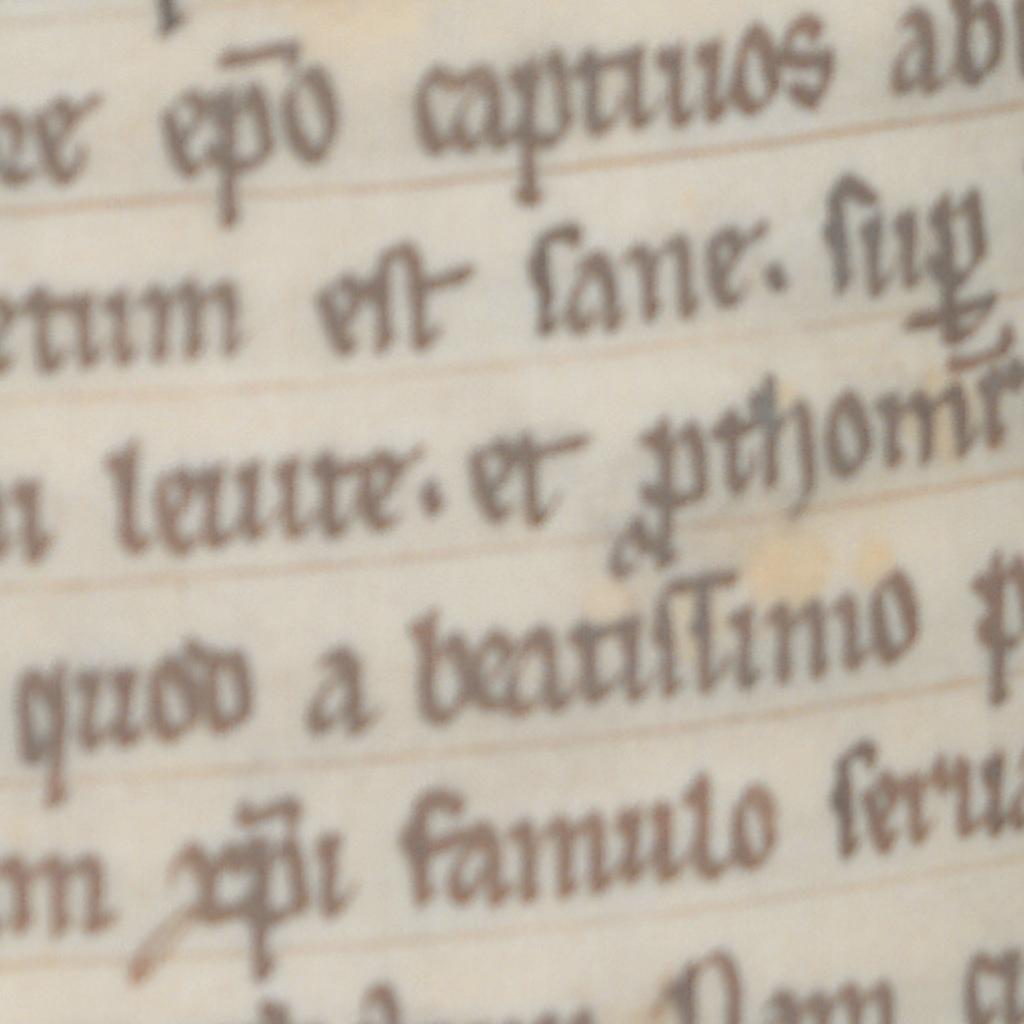 ep̄o captiuos
etum est sane. sup̲
leuite. et pthomr̄
quod a beatissimo p
xp̄i famulo serua
Nam